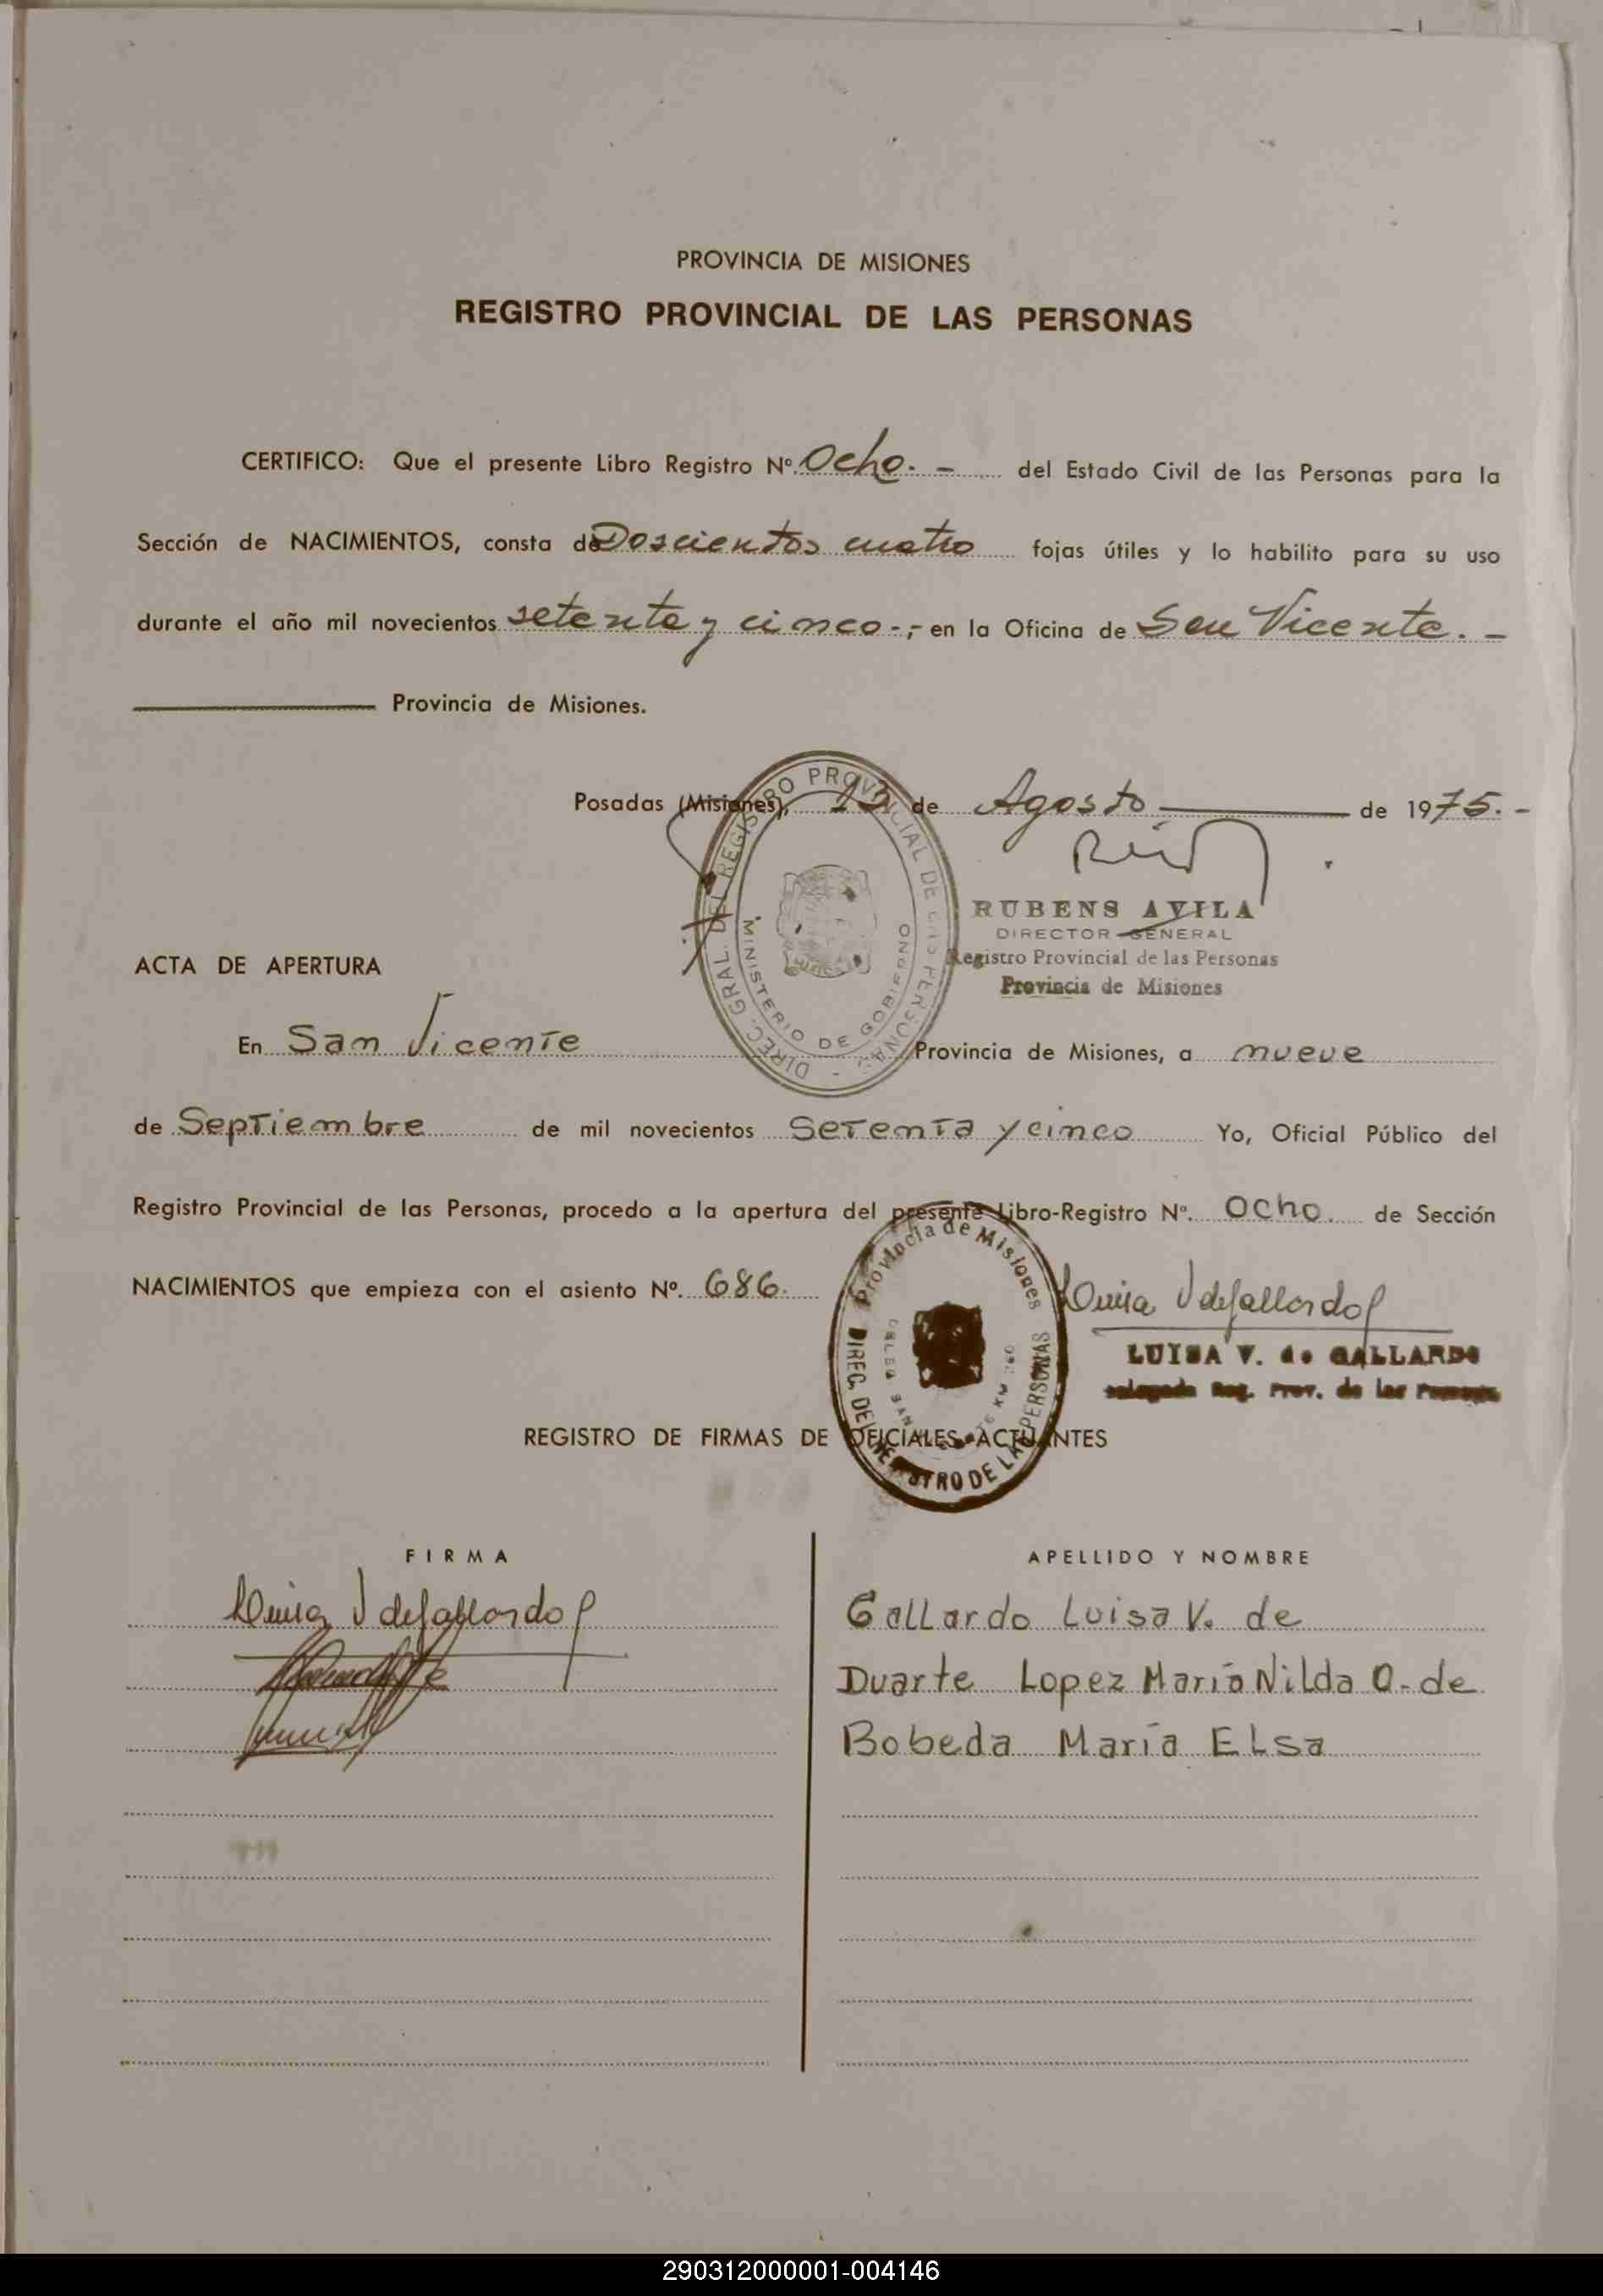 PROVINCIA DE MISIONES
REGISTRO PROVINCIAL DE LAS PERSONAS
CERTIFICO: Que el presente Libro Registro Nº Ocho. - del Estado Civil de las Personas para la
Sección de NACIMIENTOS, consta de Doscientos cuatro fojas útiles y lo habilito para su uso
durante el año mil novecientos setenta y cinco -,- en la Oficina de San Vicente. -
Provincia de Misiones.
Posadas (Misiones), de Agosto de 1975. -
DIREC. GRAL. DEL REGISTRO PROVINCIAL DE LAS PERSONAS -
MINISTERIO DE GOBIERNO
RUBENS AVILA
DIRECTOR GENERAL
Registro Provincial de las Personas
Provincia de Misiones
ACTA DE APERTURA
En San Vicente Provincia de Misiones, a nueve
de Septiembre de mil novecientos Setenta y cinco Yo, Oficial Público del
Registro Provincial de las Personas, procedo a la apertura del presente Libro-Registro Nº. Ocho. de Sección
NACIMIENTOS que empieza con el asiento Nº. 686.
Provincia de Misiones
DIREC. DE REGISTRO DE LAS PERSONAS
Luisa V de Gallardo
LUISA V. de GALLARDO
Reg. Prov. de las Personas
REGISTRO DE FIRMAS DE OFICIALES ACTUANTES
FIRMA APELLIDO Y NOMBRE
Luisa V de Gallardo Gallardo Luisa V. de
Duarte Lopez María Nilda O. de
Bobeda María Elsa
290312000001-004146